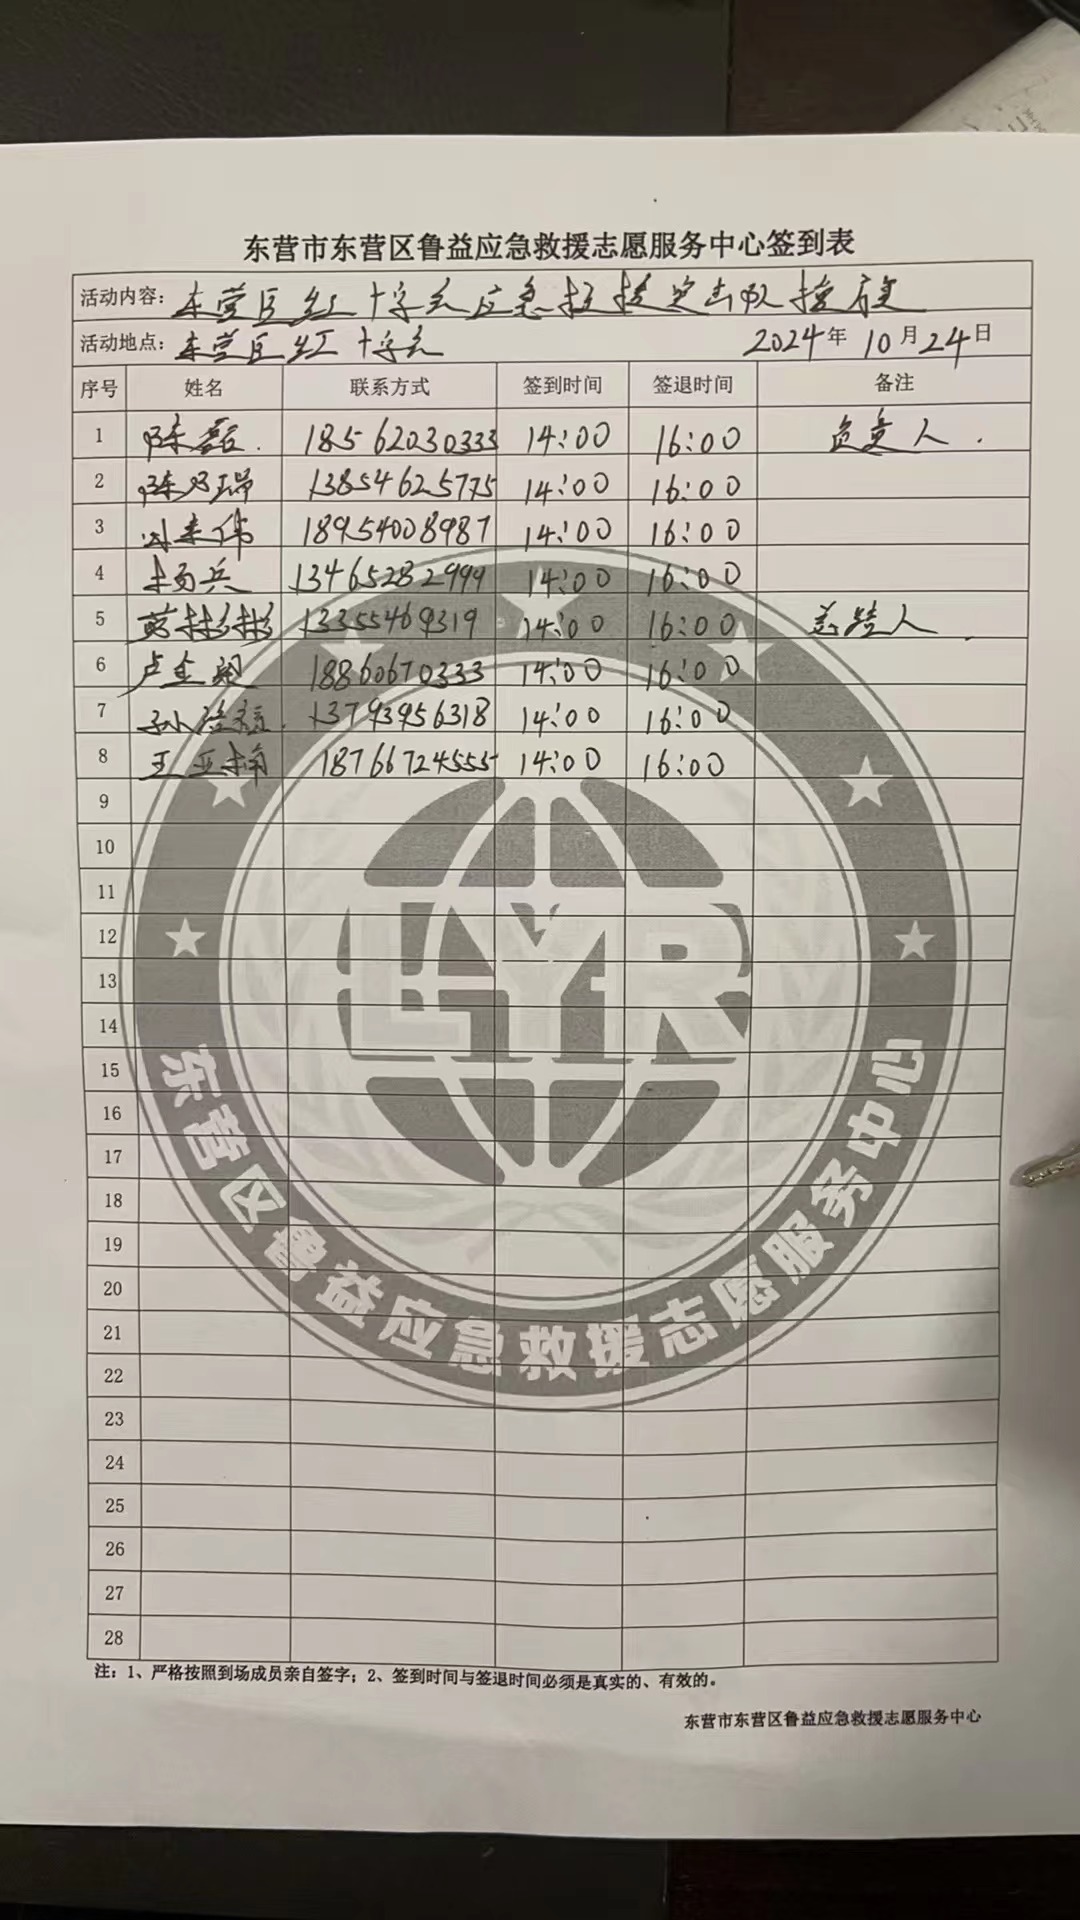 东营市东营区鲁益应急救援志愿服务中心签到表
活动内容： 东营区红十字会应急救援突击队授旗
活动地点： 东营区红十字会 2024年 10月24日
序号 姓名 联系方式 签到时间 签退时间 备注
1 陈磊. 18562030333 14:00 16:00 负责人.
2 陈乃瑞 13854625775 14:00 16:00
3 刘来伟 18954008987 14:00 16:00
4 13465282999 14:00 16:00
5 彬彬 13355469319 14:00 16:00 人
6 卢金 18860670333 14:00 16:00
7 孙 13793956318 14:00 16:00
8 王亚楠 18766724555 14:00 16:00
9
10
11
12
13
14
15
16
17
18
19
20
21
22
23
24
25
26
27
28
LYR
东营区鲁益应急救援志愿服务中心
注：1、严格按照到场成员亲自签字；2、签到时间与签退时间必须是真实的、有效的。
东营市东营区鲁益应急救援志愿服务中心